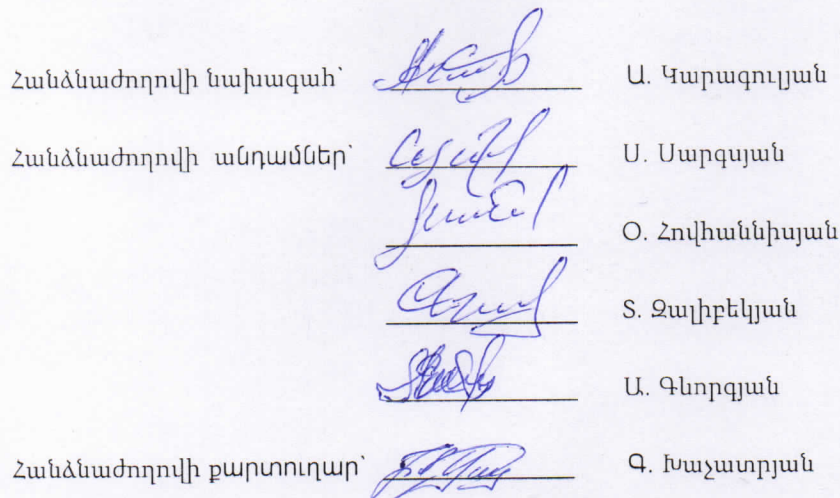 Հանձնաժողովի նախագահ՝ Ա. Կարագուլյան
Հանձնաժողովի անդամներ՝ Ս. Սարգսյան
Օ. Հովհաննիսյան
Տ. Չալիբեկյան
Ա. Գևորգյան
Հանձնաժողովի քարտուղար՝ Գ. Խաչատրյան